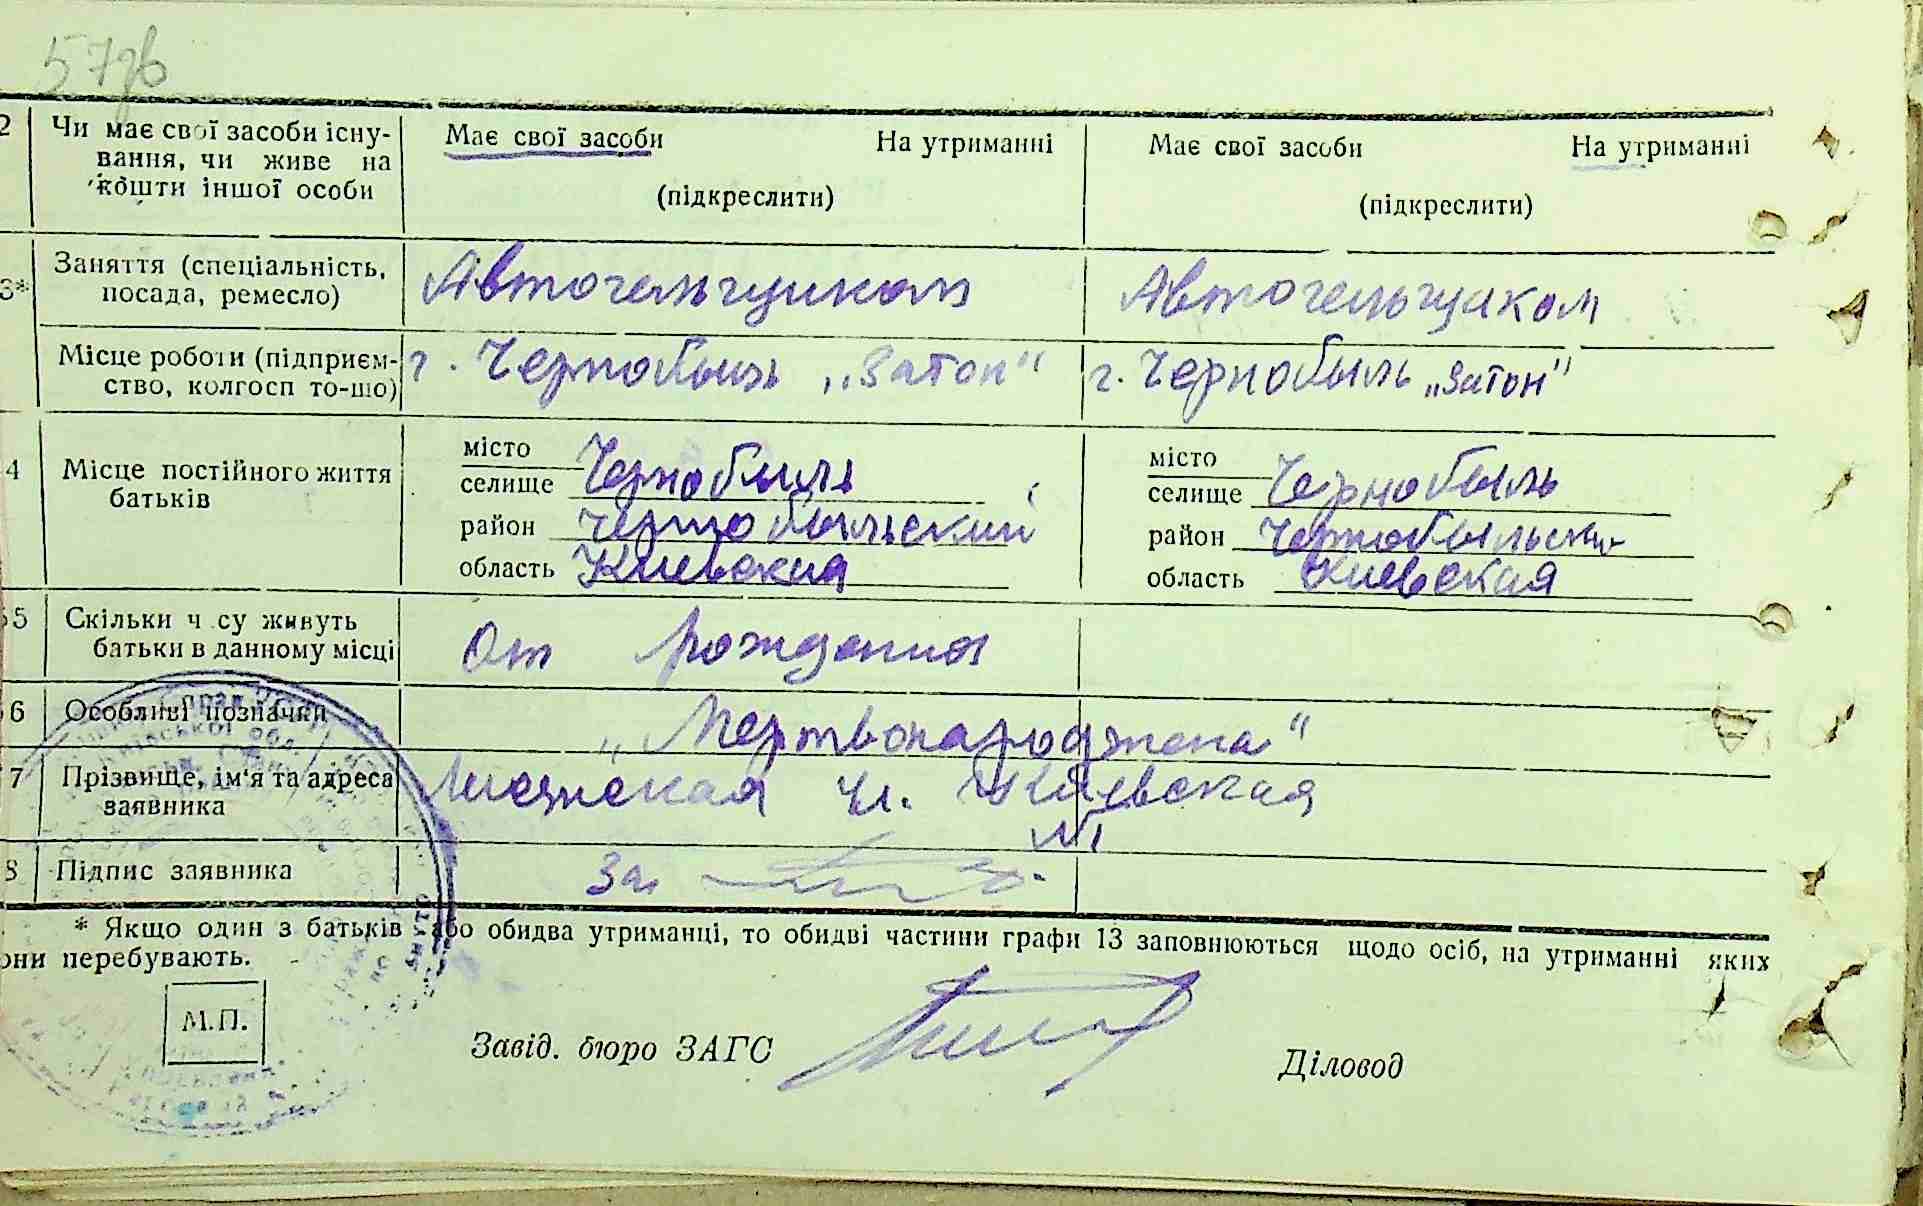 57зв
2 Чи має свої засоби існу- Має свої засоби На утриманні Має свої засоби На утриманні
вання, чи живе на
кошти іншої особи (підкреслити) (підкреслити)
3* Заняття (спеціальність, Автогельщиком Автогельщиком
посада, ремесло)
Місце роботи (підприєм- г. Чернобыль „Затон" г. Чернобыль „Затон"
ство, колгосп то-що)
місто Чернобыль місто Чернобыль
4 Місце постійного життя селище селище
батьків район Чернобыльский район Чернобыльский
область Киевская область Киевская
5 Скільки ч су живуть От рождения
батьки в данному місці
6 Особливі позначки „Мертвонароджена"
7 Прізвище, ім'я та адреса Киевская
заявника
8 Підпис заявника За
* Якщо один з батьків або обидва утриманці, то обидві частини графи 13 заповнюються щодо осіб, на утриманні яких
они перебувають.
М.П.
Завід. бюро ЗАГС Діловод